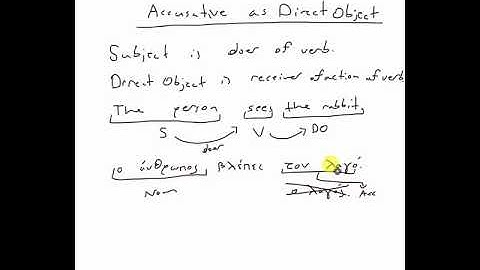 Accusative as Direct Object
Subject is doer of verb.
Direct Object is receiver of action of verb
The person sees the rabbit.
S V DO
doer
ο άνθρωπος βλέπει τον λαγό.
Nom Acc
ο λαγός.